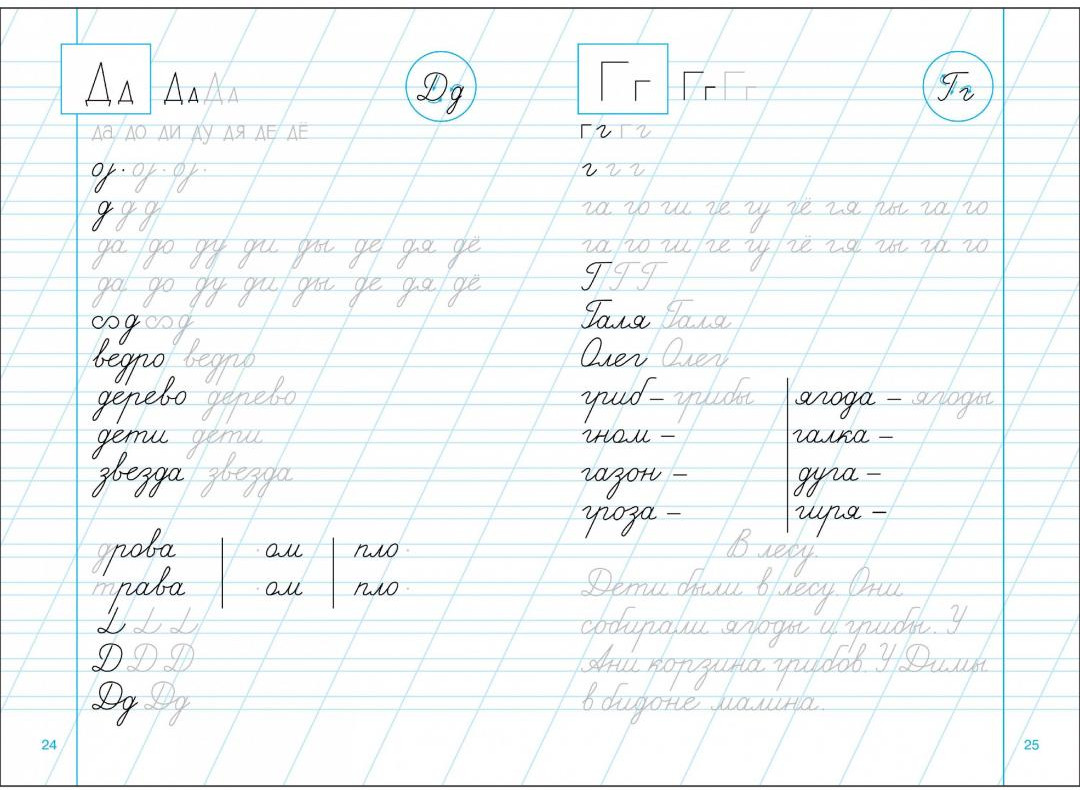 Дд Дд Дд Дд
да до ди ду дя де дё
д д д
да до ду ди ды де дя дё
да до ду ди ды де дя дё
д д
ведро ведро
дерево дерево
дети дети
звезда звезда
дрова ом пло
трава ом пло
Д Д Д
Дд Дд
24
Гг Гг Гг Гг
Г г Г г
г г г
га го ги ге гу гё гя гы га го
га го ги ге гу гё гя гы га го
Г Г Г
Галя Галя
Олег Олег
гриб – грибы ягода – ягоды
гном – галка –
газон – дуга –
гроза – гиря –
В лесу.
Дети были в лесу. Они
собирали ягоды и грибы. У
Ани корзина грибов. У Димы
в бидоне малина.
25